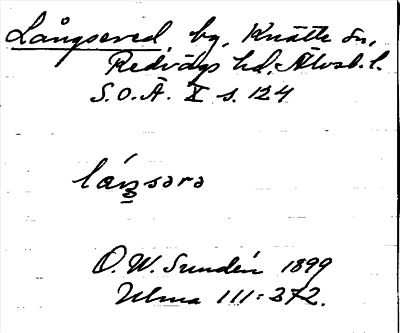 Långsered, by, Knätte sn,
Redvägs hd, Älvsb. l.
S.O.Ä. X s. 124
O. W. Sundén 1899
Ulma 111:372.